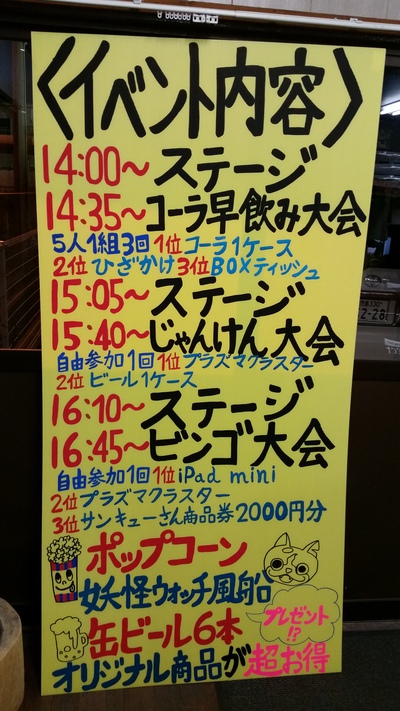 〈イベント内容〉
14:00～ステージ
14:35～コーラ早飲み大会
5人1組3回 1位 コーラ1ケース
2位 ひざかけ 3位 BOXティッシュ
15:05～ステージ
15:40～じゃんけん大会
自由参加1回 1位 プラズマクラスター
2位 ビール1ケース
16:10～ステージ
16:45～ビンゴ大会
自由参加1回 1位 iPad mini
2位 プラズマクラスター
3位 サンキューさん商品券2000円分
ポップコーン
妖怪ウォッチ風船
プレゼント!?
缶ビール6本
オリジナル商品が超お得